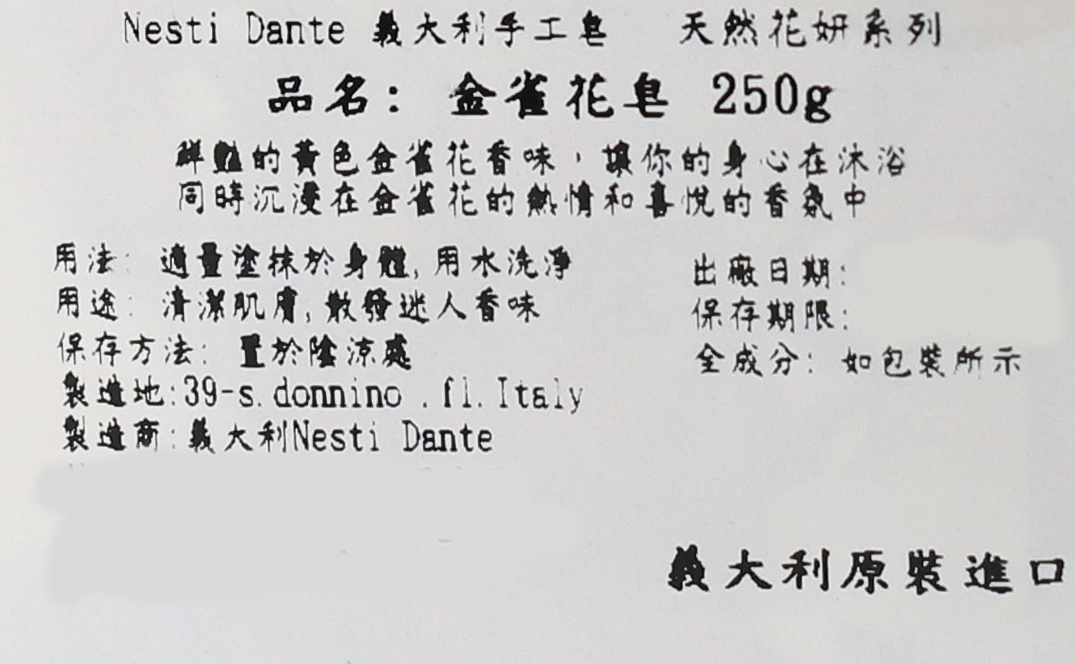 Nesti Dante 義大利手工皂 天然花妍系列
品名: 金雀花皂 250g
鮮豔的黃色金雀花香味,讓你的身心在沐浴
同時沉浸在金雀花的熱情和喜悅的香氛中
用法: 適量塗抹於身體,用水洗淨
用途: 清潔肌膚,散發迷人香味
保存方法: 置於陰涼處
製造地:39-s.donnino .fl.Italy
製造商:義大利Nesti Dante
出廠日期:
保存期限:
全成分: 如包裝所示
義大利原裝進口